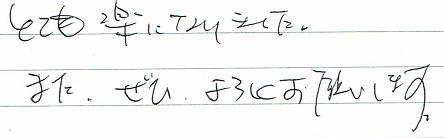 とても 楽になりました。
また、ぜひ、よろしくお願いします。